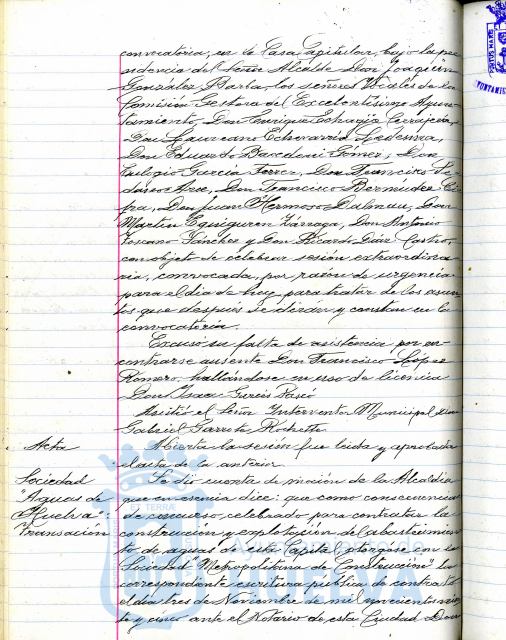 convocatoria, en la Casa Capitular, bajo la pre-
sidencia del Señor Alcalde Don Joaquín
González Barba, los señores Vocales de la
Comisión Gestora del Excelentísimo Ayun-
tamiento, Don Enrique
Don Laureano Echevarría Ledesma,
Don Eduardo Gómez, Don
Eulogio García Don Francisco
Don Francisco Bermúdez
Don Juan Hermoso Don
Martín Eguiguren Zárraga, Don Antonio
Sánchez y Don Ricardo Castro,
con objeto de celebrar sesión extraordina-
ria, convocada, por razón de urgencia
para el día de hoy, para tratar de los asun-
tos que después se dirán y constan en la
convocatoria.
Excusó su falta de asistencia por en-
contrarse ausente Don Francisco López
Romero, hallándose en uso de licencia
Don Isaac García
Asistió el Señor Interventor Municipal Don
Gabriel Garrote
Acta
Abierta la sesión fue leída y aprobada
el acta de la anterior.
Sociedad
"Aguas de
Huelva":
Transación
Se dió cuenta de moción de la Alcaldía
que en esencia dice: que como consecuencia
de concurso, celebrado para contratar la
construcción y explotación del abastecimien-
to de aguas de esta Capital, otorgose con la
Sociedad "Metropolitana de Construcción" la
correspondiente escritura pública de contrato
el día tres de Noviembre de mil novecientos vein-
te y cinco ante el Notario de esta Ciudad Don
PORTUS MARIS
ET TERRÆ
Ayuntamiento de
HUELVA